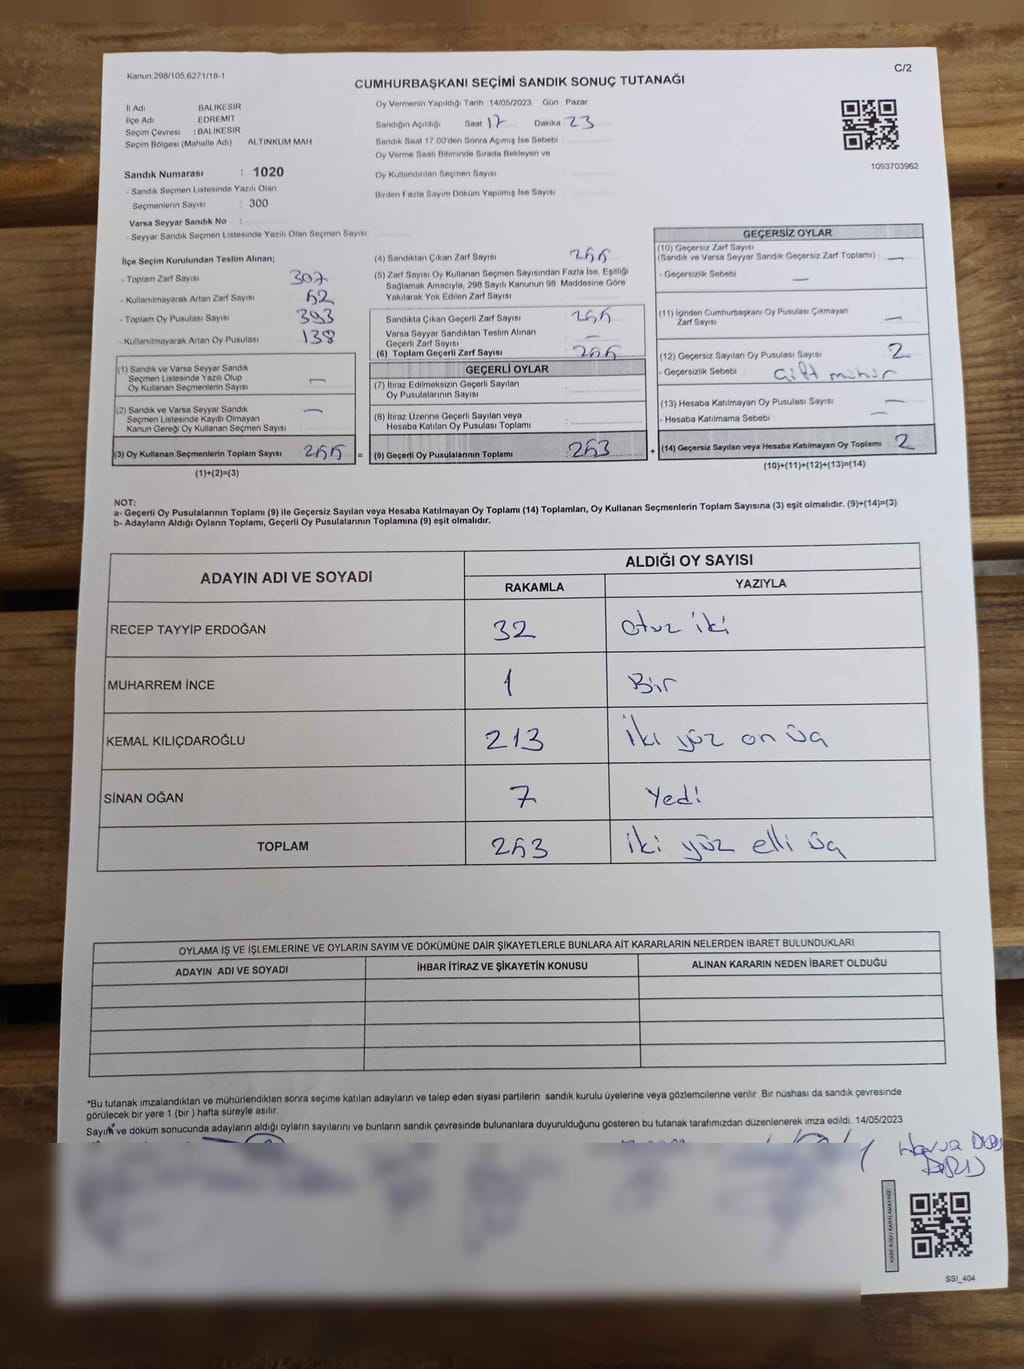 Kanun:298/105,6271/18-1
C/2
CUMHURBAŞKANI SEÇİMİ SANDIK SONUÇ TUTANAĞI
İl Adı BALIKESİR
İlçe Adı EDREMİT
Seçim Çevresi : BALIKESİR
Seçim Bölgesi (Mahalle Adı) ALTINKUM MAH
Oy Vermenin Yapıldığı Tarih :14/05/2023 Gün : Pazar
Sandığın Açıldığı Saat 17 Dakika 23
Sandık Saat 17.00'den Sonra Açımış İse Sebebi :
Oy Verme Saati Bitiminde Sırada Bekleyen ve
Oy Kullandırılan Seçmen Sayısı
Birden Fazla Sayım Döküm Yapılmış İse Sayısı
1093703962
Sandık Numarası : 1020
- Sandık Seçmen Listesinde Yazılı Olan
Seçmenlerin Sayısı : 300
Varsa Seyyar Sandık No :
- Seyyar Sandık Seçmen Listesinde Yazılı Olan Seçmen Sayısı:
İlçe Seçim Kurulundan Teslim Alınan;
- Toplam Zarf Sayısı 307
- Kullanılmayarak Artan Zarf Sayısı 52
- Toplam Oy Pusulası Sayısı 393
- Kullanılmayarak Artan Oy Pusulası 138
(1) Sandık ve Varsa Seyyar Sandık
Seçmen Listesinde Yazılı Olup
Oy Kullanan Seçmenlerin Sayısı —
(2) Sandık ve Varsa Seyyar Sandık
Seçmen Listesinde Kayıtlı Olmayan
Kanun Gereği Oy Kullanan Seçmen Sayısı —
(3) Oy Kullanan Seçmenlerin Toplam Sayısı 255 =
(1)+(2)=(3)
(4) Sandıktan Çıkan Zarf Sayısı 255
(5) Zarf Sayısı Oy Kullanan Seçmen Sayısından Fazla İse, Eşitliği
Sağlamak Amacıyla, 298 Sayılı Kanunun 98. Maddesine Göre
Yakılarak Yok Edilen Zarf Sayısı
Sandıkta Çıkan Geçerli Zarf Sayısı 255
Varsa Seyyar Sandıktan Teslim Alınan
Geçerli Zarf Sayısı —
(6) Toplam Geçerli Zarf Sayısı 255
GEÇERLİ OYLAR
(7) İtiraz Edilmeksizin Geçerli Sayılan
Oy Pusulalarının Sayısı :
(8) İtiraz Üzerine Geçerli Sayılan veya
Hesaba Katılan Oy Pusulası Toplamı :
(9) Geçerli Oy Pusulalarının Toplamı :253 +
GEÇERSİZ OYLAR
(10) Geçersiz Zarf Sayısı
(Sandık ve Varsa Seyyar Sandık Geçersiz Zarf Toplamı) —
- Geçersizlik Sebebi —
(11) İçinden Cumhurbaşkanı Oy Pusulası Çıkmayan
Zarf Sayısı —
(12) Geçersiz Sayılan Oy Pusulası Sayısı 2
- Geçersizlik Sebebi Çift mühür
(13) Hesaba Katılmayan Oy Pusulası Sayısı —
- Hesaba Katılmama Sebebi : —
(14) Geçersiz Sayılan veya Hesaba Katılmayan Oy Toplamı 2
(10)+(11)+(12)+(13)=(14)
NOT:
a- Geçerli Oy Pusulalarının Toplamı (9) ile Geçersiz Sayılan veya Hesaba Katılmayan Oy Toplamı (14) Toplamları, Oy Kullanan Seçmenlerin Toplam Sayısına (3) eşit olmalıdır. (9)+(14)=(3)
b- Adayların Aldığı Oyların Toplamı, Geçerli Oy Pusulalarının Toplamına (9) eşit olmalıdır.
ADAYIN ADI VE SOYADI ALDIĞI OY SAYISI
RAKAMLA YAZIYLA
RECEP TAYYİP ERDOĞAN 32 otuz iki
MUHARREM İNCE 1 Bir
KEMAL KILIÇDAROĞLU 213 iki yüz on üç
SİNAN OĞAN 7 Yedi
TOPLAM 253 iki yüz elli üç
OYLAMA İŞ VE İŞLEMLERİNE VE OYLARIN SAYIM VE DÖKÜMÜNE DAİR ŞİKAYETLERLE BUNLARA AİT KARARLARIN NELERDEN İBARET BULUNDUKLARI
ADAYIN ADI VE SOYADI İHBAR İTİRAZ VE ŞİKAYETİN KONUSU ALINAN KARARIN NEDEN İBARET OLDUĞU
*Bu tutanak imzalandıktan ve mühürlendikten sonra seçime katılan adayların ve talep eden siyasi partilerin sandık kurulu üyelerine veya gözlemcilerine verilir. Bir nüshası da sandık çevresinde
görülecek bir yere 1 (bir ) hafta süreyle asılır.
Sayım ve döküm sonucunda adayların aldığı oyların sayılarını ve bunların sandık çevresinde bulunanlara duyurulduğunu gösteren bu tutanak tarafımızdan düzenlenerek imza edildi. 14/05/2023
KARE KODU KARALAMAYINIZ!
SSI_404